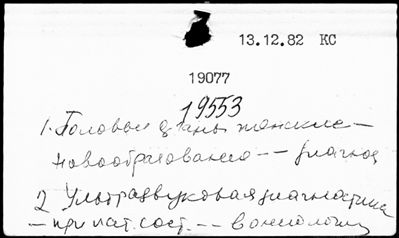 13.12.82 КС
19077
19553
1. Половые органы женские —
новообразования -- диагноз
2 Ультразвуковая диагностика
— при пат. сост. -- в онкологии